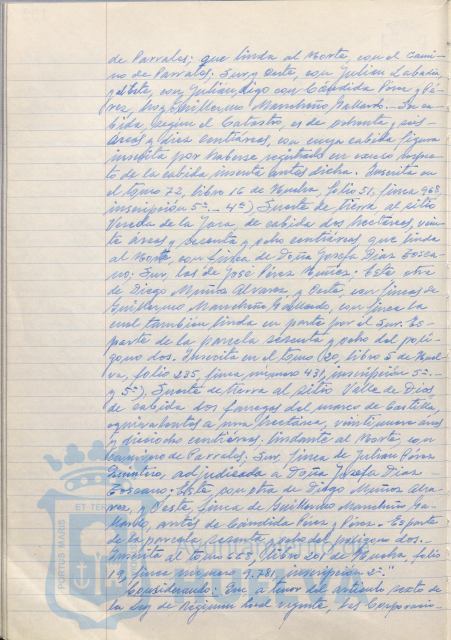 de Parrales; que linda al Norte, con el Cami-
no de Parrales; Sur y Oeste, con Julian Labadía,
y al Este, con Julian, digo con Cándida Pérez y Pé-
rez, hoy Guillermo Mandreño Gallardo. Su ca-
bida, según el Catastro, es de ochenta y seis
áreas y diez centiáreas, con cuya cabida figura
inscrita por haberse registrado en exceso respec-
to de la cabida inscrita antes dicha. Inscrita en
el tomo 72, libro 16 de Huelva, folio 51, finca 968
inscripción 5ª.- 4º) Suerte de tierra al sitio
Vereda de la Jara, de cabida dos hectáreas, vein-
te áreas y sesenta y ocho centiáreas, que linda
al Norte, con finca de Doña Josefa Diaz Tosca-
no; Sur, las de José Pérez Núñez; Este otra
de Diego Muñoz Alvarez, y Oeste, con fincas de
Guillermo Mandreño Gallardo, con finca la
cual tambien linda en parte por el Sur. Es
parte de la parcela sesenta y ocho del polí-
gono dos. Inscrita en el tomo 20, libro 5 de Huel-
va, folio 235, finca número 431, inscripción 5ª.-
y 5º). Suerte de tierra al sitio Valle de Dios,
de cabida dos fanegas del marco de Castilla,
equivalentes a una hectárea, veintinueve áreas
y dieciocho centiáreas. Lindante al Norte, con
camino de Parrales; Sur, finca de Julian Pérez
Quintero, adjudicada a Doña Josefa Diaz
Toscano; Este, con otra de Diego Muñoz Alva-
rez, y Oeste, finca de Guillermo Mandreño Ga-
llardo, antes de Cándida Pérez y Pérez. Es parte
de la parcela sesenta y ocho del polígono dos.-
Inscrita al tomo 563, libro 201 de Huelva, folio
19, finca número 9.781, inscripción 2ª."
Considerando: Que a tenor del artículo sexto de
la Ley de Régimen Local vigente, las Corporacio-
PORTUS MARIS
ET TER